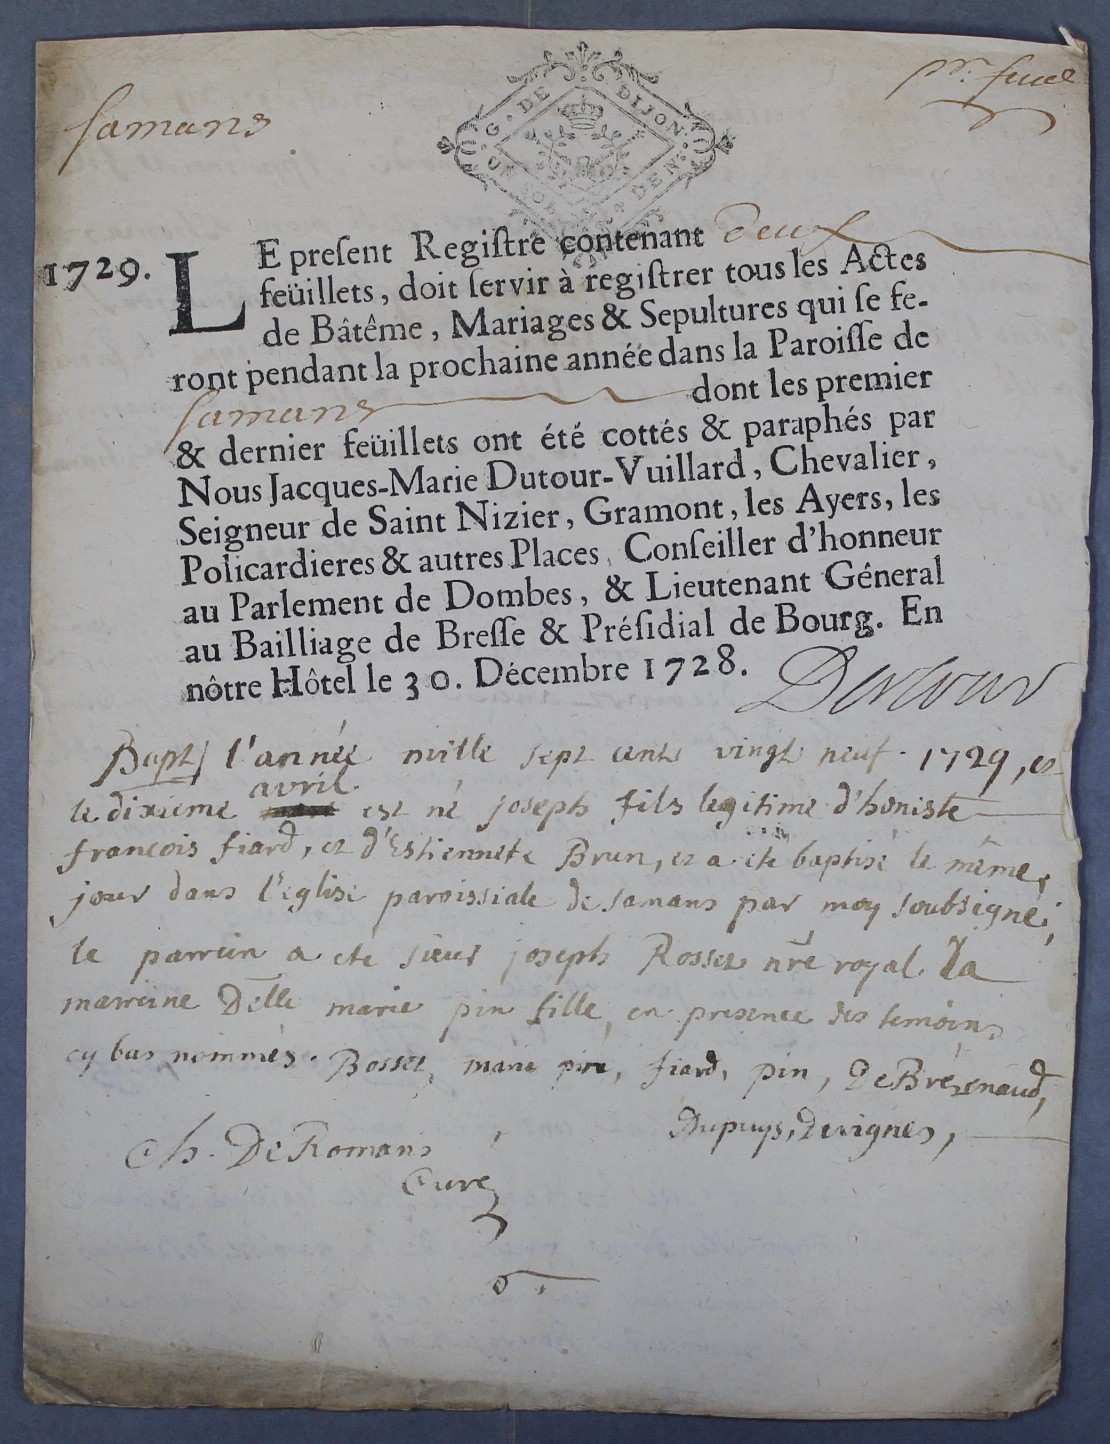 samans
pr. feuil
G. DE DIJON
UN SOL DE N.
1729. LE preſent Regiſtre contenant deux
feüillets, doit ſervir à regiſtrer tous les Actes
de Bâtême, Mariages & Sepultures qui ſe fe-
ront pendant la prochaine année dans la Paroiſſe de
samans dont les premier
& dernier feüillets ont été cottés & paraphés par
Nous Jacques-Marie Dutour-Vuillard, Chevalier,
Seigneur de Saint Nizier, Gramont, les Ayers, les
Policardieres & autres Places, Conſeiller d'honneur
au Parlement de Dombes, & Lieutenant Géneral
au Bailliage de Breſſe & Préſidial de Bourg. En
nôtre Hôtel le 30. Décembre 1728.
Dutour
Bapt l'année mille sept cents vingt neuf. 1729, et
avril
le dixieme est né joseph fils legitime d'honiste
françois fiard, et d'Estiennete Brun, et a ete baptisé le même
jour dans l'eglise paroissiale de samans par moy soubsigné;
le parrein a ete sieur joseph Rosset nre royal la
marreine Delle marie pin fille, en presence des temoins
cy bas nommés. Rosset, marie pin, fiard, pin, De Brezenaud,
Dupuys, Devignes,
Ch. De Romans
Curé